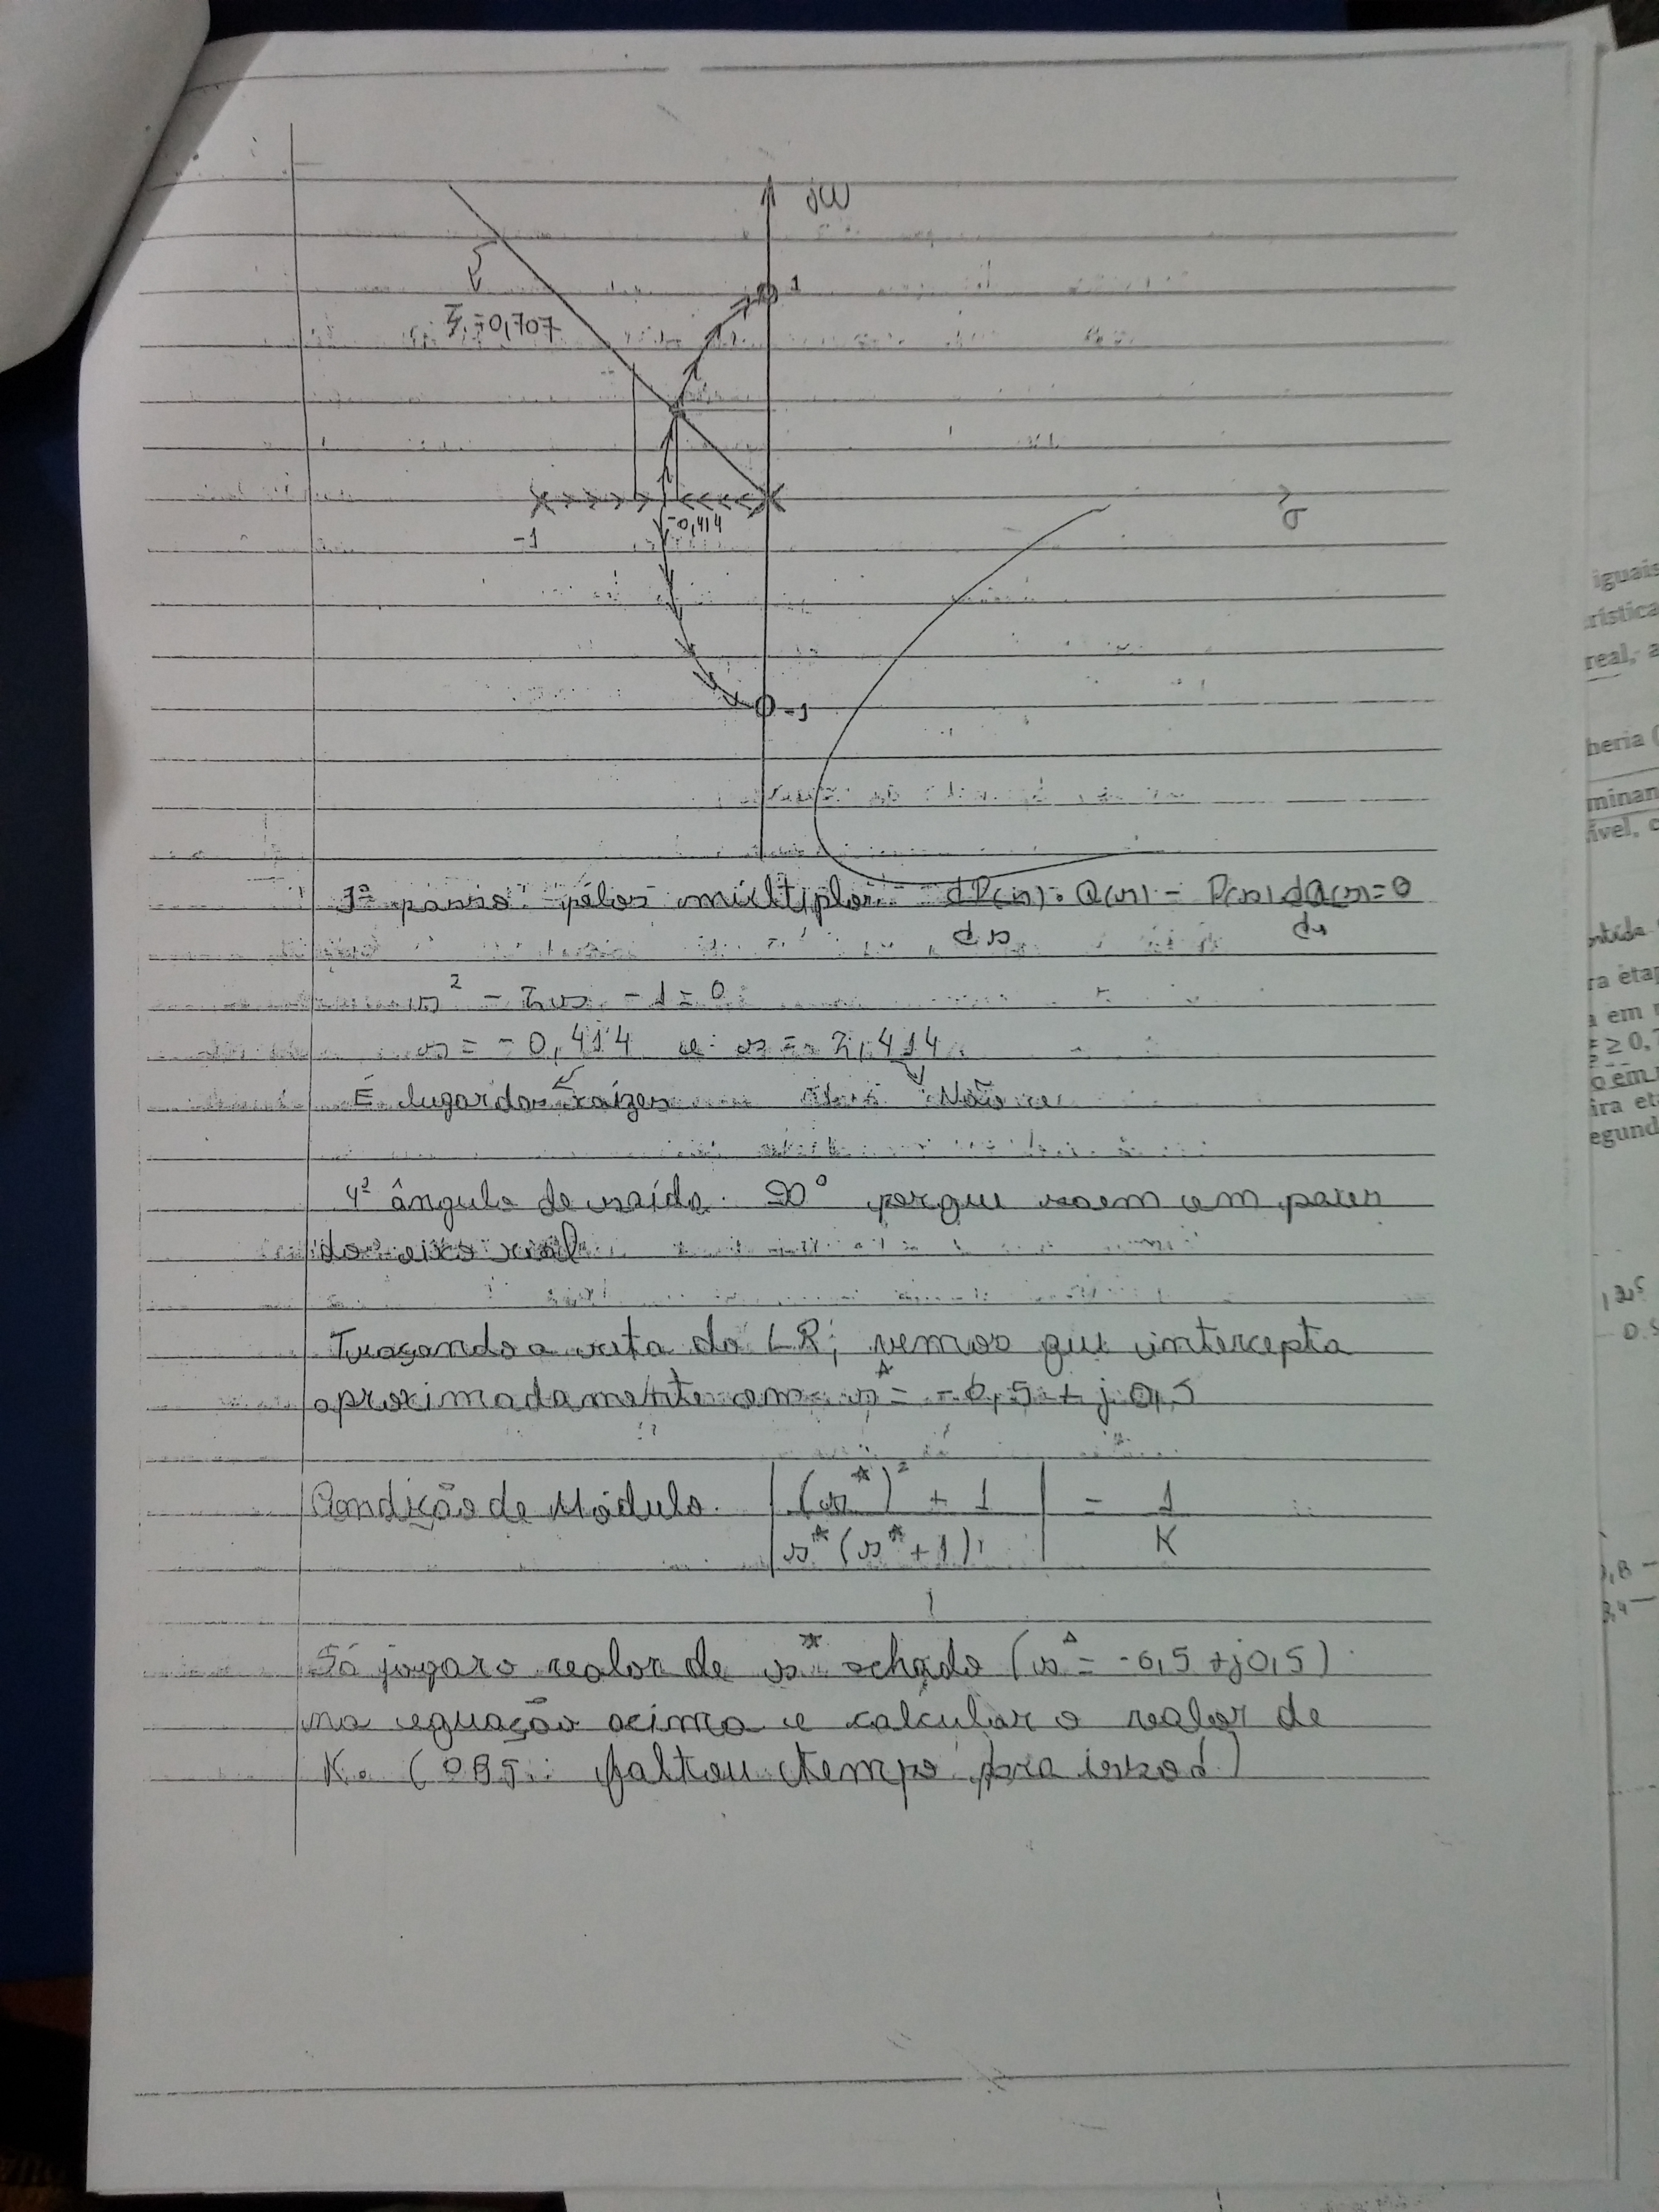 jω
1
ξ=0,707
-0,414
-1
σ
-1
3º passo: pólos múltiplos dP(s).Q(s) - P(s)dQ(s)=0
ds ds
s² - 2s - 1 = 0
s = -0,414 e s = 2,414
É lugar das raízes Não é
4º ângulo de saída. 90° porque saem em pares
do eixo real
Traçando a reta do LR, vemos que intercepta
aproximadamente em s* = -0,5 + j0,5
Condição de Módulo. |(s*)² + 1| = 1
s*(s*+1) K
Só jogar o valor de s* achado (s* = -0,5 + j0,5)
na equação acima e calcular o valor de
K. (OBS: faltou tempo pra isso!)
iguais
rística
real, a
heria (
minan
ível, c
ra etap
a em
≥ 0,7
o em
ira et
egund